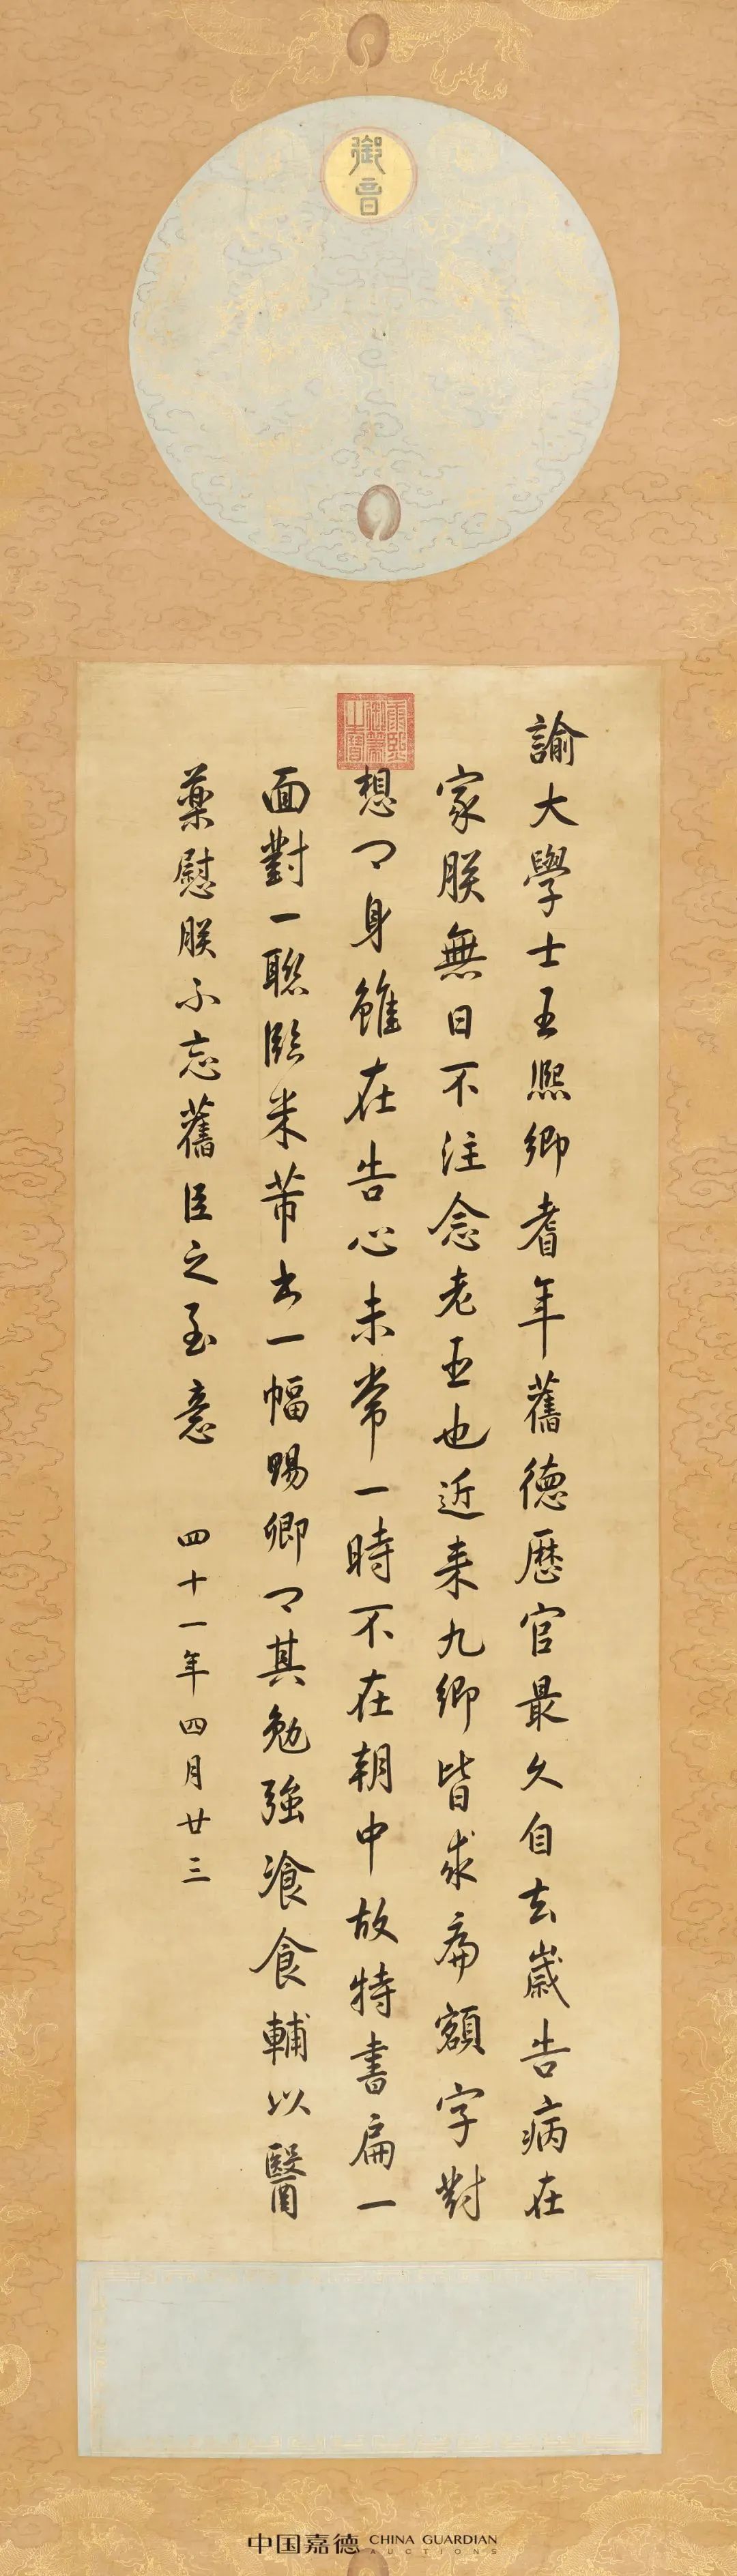 御音
康熙御筆之寶
諭大學士王熙卿耆年舊德歷官最久自去歲告病在
家朕無日不注念老臣也近来九卿皆求扁額字對
想卿身雖在告心未常一時不在朝中故特書扁一
面對一聯臨米芾書一幅賜卿卿其勉強湌食輔以醫
藥慰朕不忘舊臣之至意 四十一年四月廿三
中国嘉德 CHINA GUARDIAN
AUCTIONS